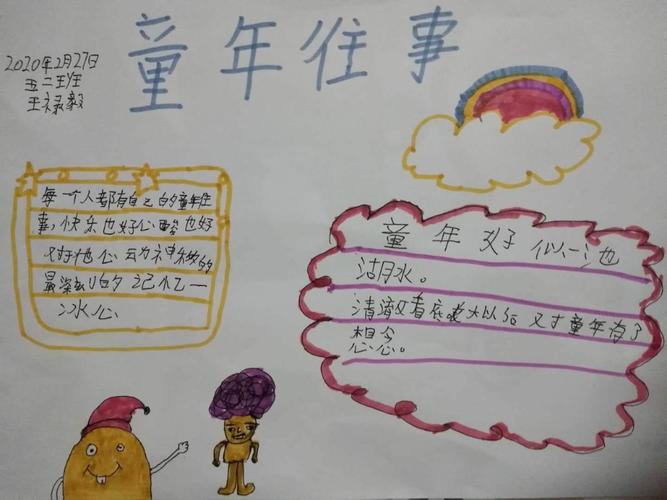 童年往事
2020年2月27日
五二班
王禄毅
每一个人都有自己的童年往
事，快乐也好心酸也好
对于他心动神移的
最深刻的记忆一
冰心
童年好似一池
湖水。
清澈着底 长大以后 对童年有了
想念。